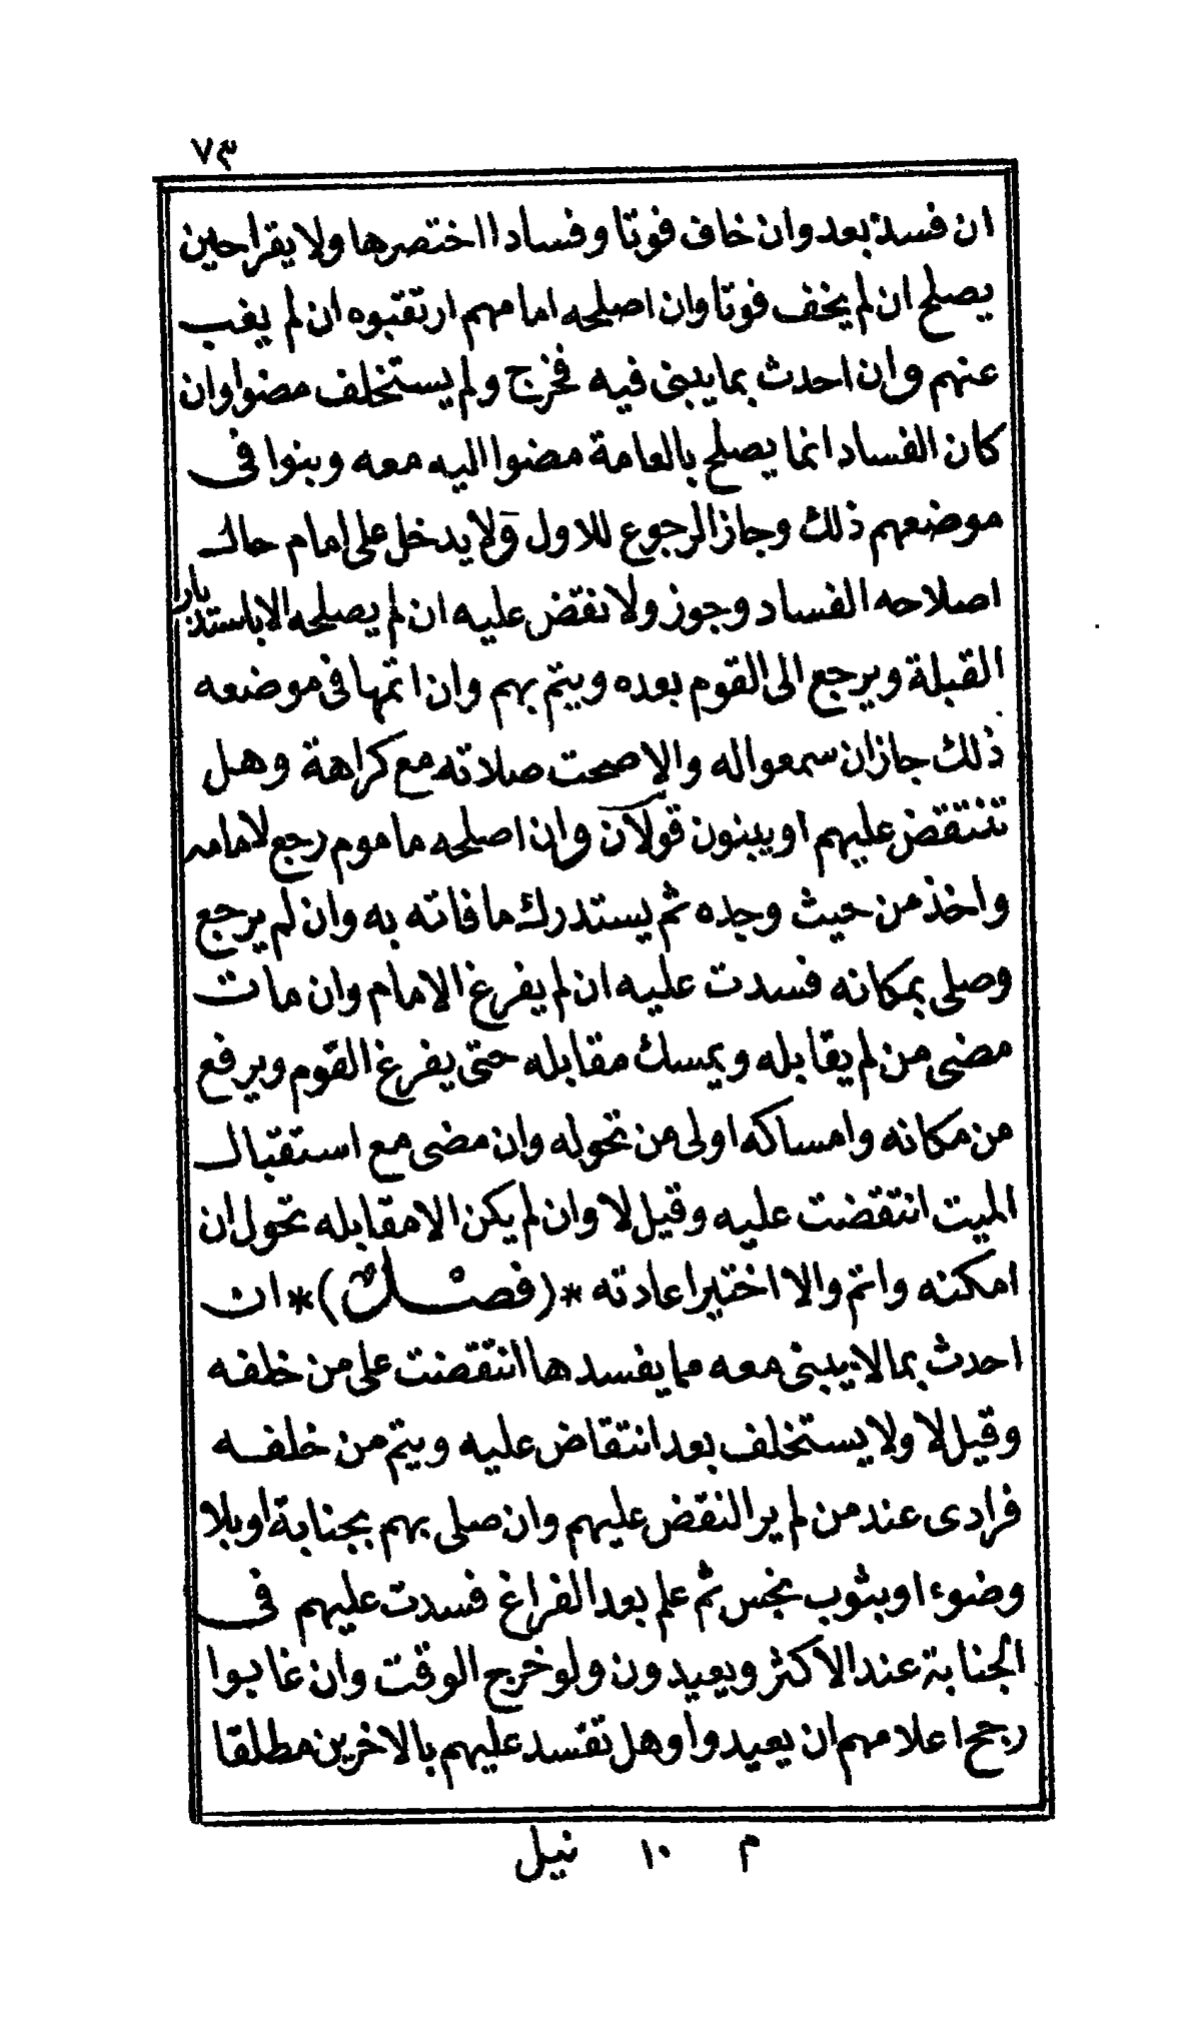 ٧٣
ان فسد بعد وان خاف فوتا وفسادا اختصرها ولا يقرا حين
يصلح ان لم يخف فوتا وان اصلحه امامهم ارتقبوه ان لم يغب
عنهم وان احدث بما يبنى فيه فخرج ولم يستخلف مضوا وان
كان الفساد انما يصلح بالعامة مضوا اليه معه وبنوا فى
موضعهم ذلك وجاز الرجوع للاول ولا يدخل على امام حال
اصلاحه الفساد وجوز ولا نقض عليه ان لم يصلحه الا باستدبار
القبلة ويرجع الى القوم بعده ويتم بهم وان اتمها فى موضعه
ذلك جاز ان سمعوا له والا صحت صلاته مع كراهة وهل
تنتقض عليهم او يبنون قولان وان اصلحه ماموم رجع لامامه
واخذ من حيث وجده ثم يستدرك ما فاته به وان لم يرجع
وصلى بمكانه فسدت عليه ان لم يفرغ الامام وان مات
مضى من لم يقابله ويمسك مقابله حتى يفرغ القوم ويرفع
من مكانه وامساكه اولى من تحوله وان مضى مع استقبال
الميت انتقضت عليه وقيل لا وان لم يكن الا مقابله تحول ان
امكنه واتم والا اختير اعادته *(فصل)* ان
احدث بما لا يبنى معه مما يفسدها انتقضت على من خلفه
وقيل لا ولا يستخلف بعد انتقاض عليه ويتم من خلفه
فرادى عند من لم ير النقض عليهم وان صلى بهم بجنابة او بلا
وضوء او بثوب نجس ثم علم بعد الفراغ فسدت عليهم فى
الجنابة عند الاكثر ويعيدون ولو خرج الوقت وان غابوا
رجح اعلامهم ان يعيدوا وهل تفسد عليهم بالاخرين مطلقا
م ١٠ نيل